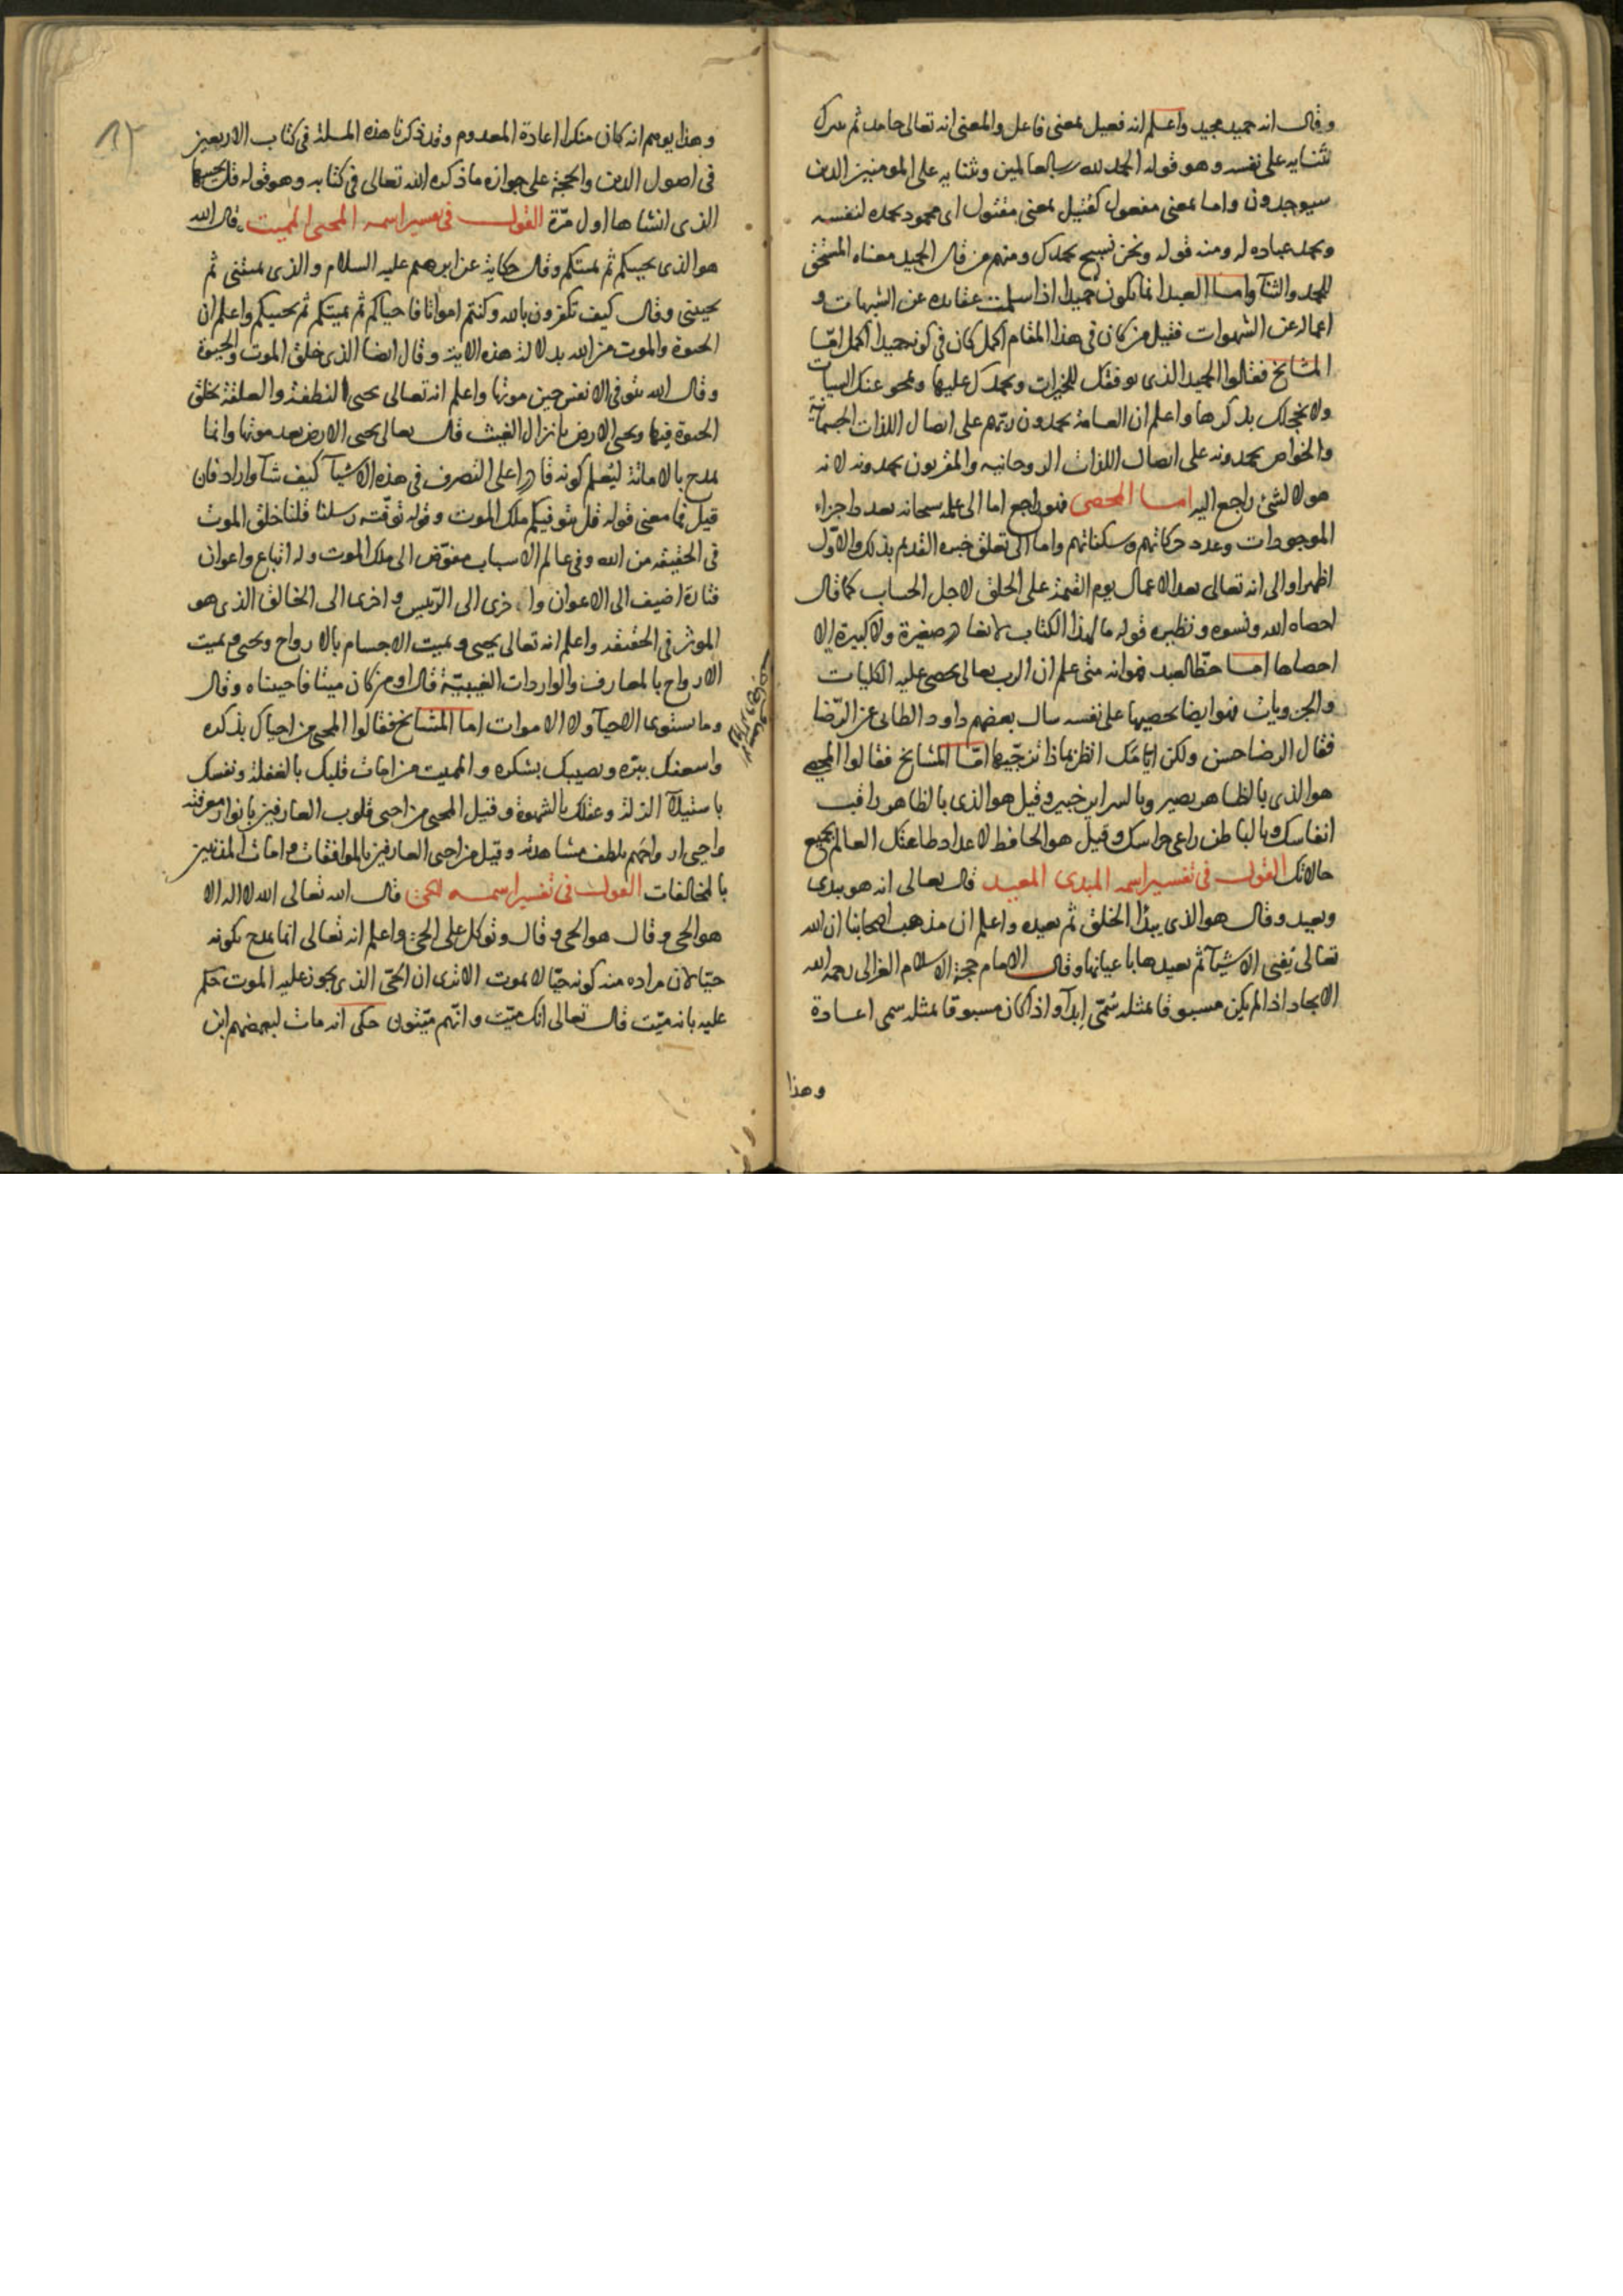 وقال انه حميد مجيد واعلم انه فعيل بمعنى فاعل والمعنى انه تعالى حامد ثم
بثنايه على نفسه وهو قوله الحمد لله رب العالمين وبثنايه على المومنين الذين
سيوجدون واما بمعنى مفعول كقتيل بمعنى مقتول اى محمود بحمده لنفسه
وبحمد عباده له ومنه قوله ونحن نسبح بحمدك ومنهم من قال الحميد معناه المستحق
للحمد والثنآ واما العبد انما يكون حميدا اذا سلمت عقايده عن الشبهات و
اعماله عن الشهوات فقيل من كان فى هذا المقام اكمل كان فى كونه حميدا اكمل امّا
المشايخ فقالوا الحميد الذى يوفقك للخيرات ويحمدك عليها ويمحو عنك السيات
ولا يخجلك بذكرها واعلم ان العامة يحمدون ربّهم على ايصال اللذات الجسمانية
والخواص يحمدونه على ايصال اللذات الروحانيه والمقربون يحمدونه لانه
هو لا لشئ راجع اليه اما المحصى فهو راجع اما الى علمه سبحانه بعدد اجزاء
الموجودات وعدد حركاتهم وسكناتهم واما الى تعلق خبره القديم بذلك والاوّل
اظهر او الى انه تعالى يعد الاعمال يوم القيمة على الخلق لاجل الحساب كما قال
احصاه الله ونسوه ونظيره قوله ما لهذا الكتاب لا يغادر صغيرة ولا كبيرة الا
احصاها اما حظّ العبد فهو انه متى علم ان الرب تعالى يحصى عليه الكليات
والجزويات فهو ايضا يحصيها على نفسه سال بعضهم داود الطائى عن الرّضا
فقال الرضا حسن ولكن ايّامك انظر بماذا تزجّيها امّا المشايخ فقالوا المحصى
هو الذى بالظاهر بصير وبالسراير خبير وقيل هو الذى بالظاهر راقب
انفاسك وبالباطن راعى حواسك وقيل هو الحافظ لاعداد طاعتك العالم بجميع
حالاتك القول فى تفسير اسمه المبدى المعيد قال تعالى انه هو يبدى
ويعيد وقال هو الذى يبدؤا الخلق ثم يعيده واعلم ان مذهب اصحابنا ان الله
تعالى يُفنى الاشيآ ثم يعيدها باعيانها وقال الامام حجة الاسلام الغزالى رحمه الله
الايجاد اذا لم يكن مسبوقا بمثله سُمّى اِبدآ واذا كان مسبوقا بمثله سمى اعادة
وهذا
وهذا يوهم انه كان منكرا اعادة المعدوم وقد ذكرنا هذه المسلة فى كتاب الاربعين
فى اصول الدين والحجة على جوازه ما ذكره الله تعالى فى كتابه وهو قوله قل يحييها
الذى انشاها اول مرّة القول فى تفسير اسمه المحيى المميت قال الله
هو الذى يحييكم ثم يميتكم وقال حكاية عن ابرهيم عليه السلام والذى يميتنى ثم
يحيينى وقال كيف تكفرون بالله وكنتم امواتا فاحياكم ثم يميتكم ثم يحييكم واعلم ان
الحيوة والموت من الله بدلالة هذه الاية وقال ايضا الذى خلق الموت والحيوة
وقال الله يتوفى الانفس حين موتها واعلم انه تعالى يحيى النطفة والعلقة بخلق
الحيوة فيها ويحيى الارض بانزال الغيث قال تعالى يحيى الارض بعد موتها وانما
يمدح بالاماتة ليُعلم كونه قادرا على التصرف فى هذه الاشيآ كيف شآ واراد فان
قيل فما معنى قوله قل يتوفيكم ملك الموت وقوله توفّته رسلنا قلنا خلق الموت
فى الحقيقه من الله وفى عالم الاسباب مفوّض الى ملك الموت وله اتباع واعوان
فتارة اضيف الى الاعوان واخرى الى الرّييس واخرى الى الخالق الذى هو
الموثر فى الحقيقه واعلم انه تعالى يحيى ويميت الاجسام بالارواح ويحيى ويميت
الارواح بالمعارف والواردات الغيبيّة قال اومن كان ميتا فاحييناه وقال
وما يستوى الاحيآ ولا الاموات اما المشايخ فقالوا المحيى من احياك بذكره
واسعدك ببرّه ونصيبك بشكره والمميت من امات قلبك بالغفلة ونفسك
باستيلآ الزلة وعقلك بالشهوة وقيل المحيى من احيى قلوب العارفين بانوار معرفته
واحيى ارواحهم بلطف مشاهدته وقيل من احيى العارفين بالموافقات وامات المذنبين
بالمخالفات القول فى تفسير اسمه الحىّ قال الله تعالى الله لا اله الا
هو الحى وقال هو الحى وقال وتوكل على الحىّ واعلم انه تعالى انما يمدح بكونه
حيّا لان مراده منه كونه حيّا لا يموت الا ترى ان الحىّ الذى يجوز عليه الموت حكم
عليه بانه ميّت قال تعالى انك ميّت وانّهم ميّتون حكى انه مات لبعضهم ابن